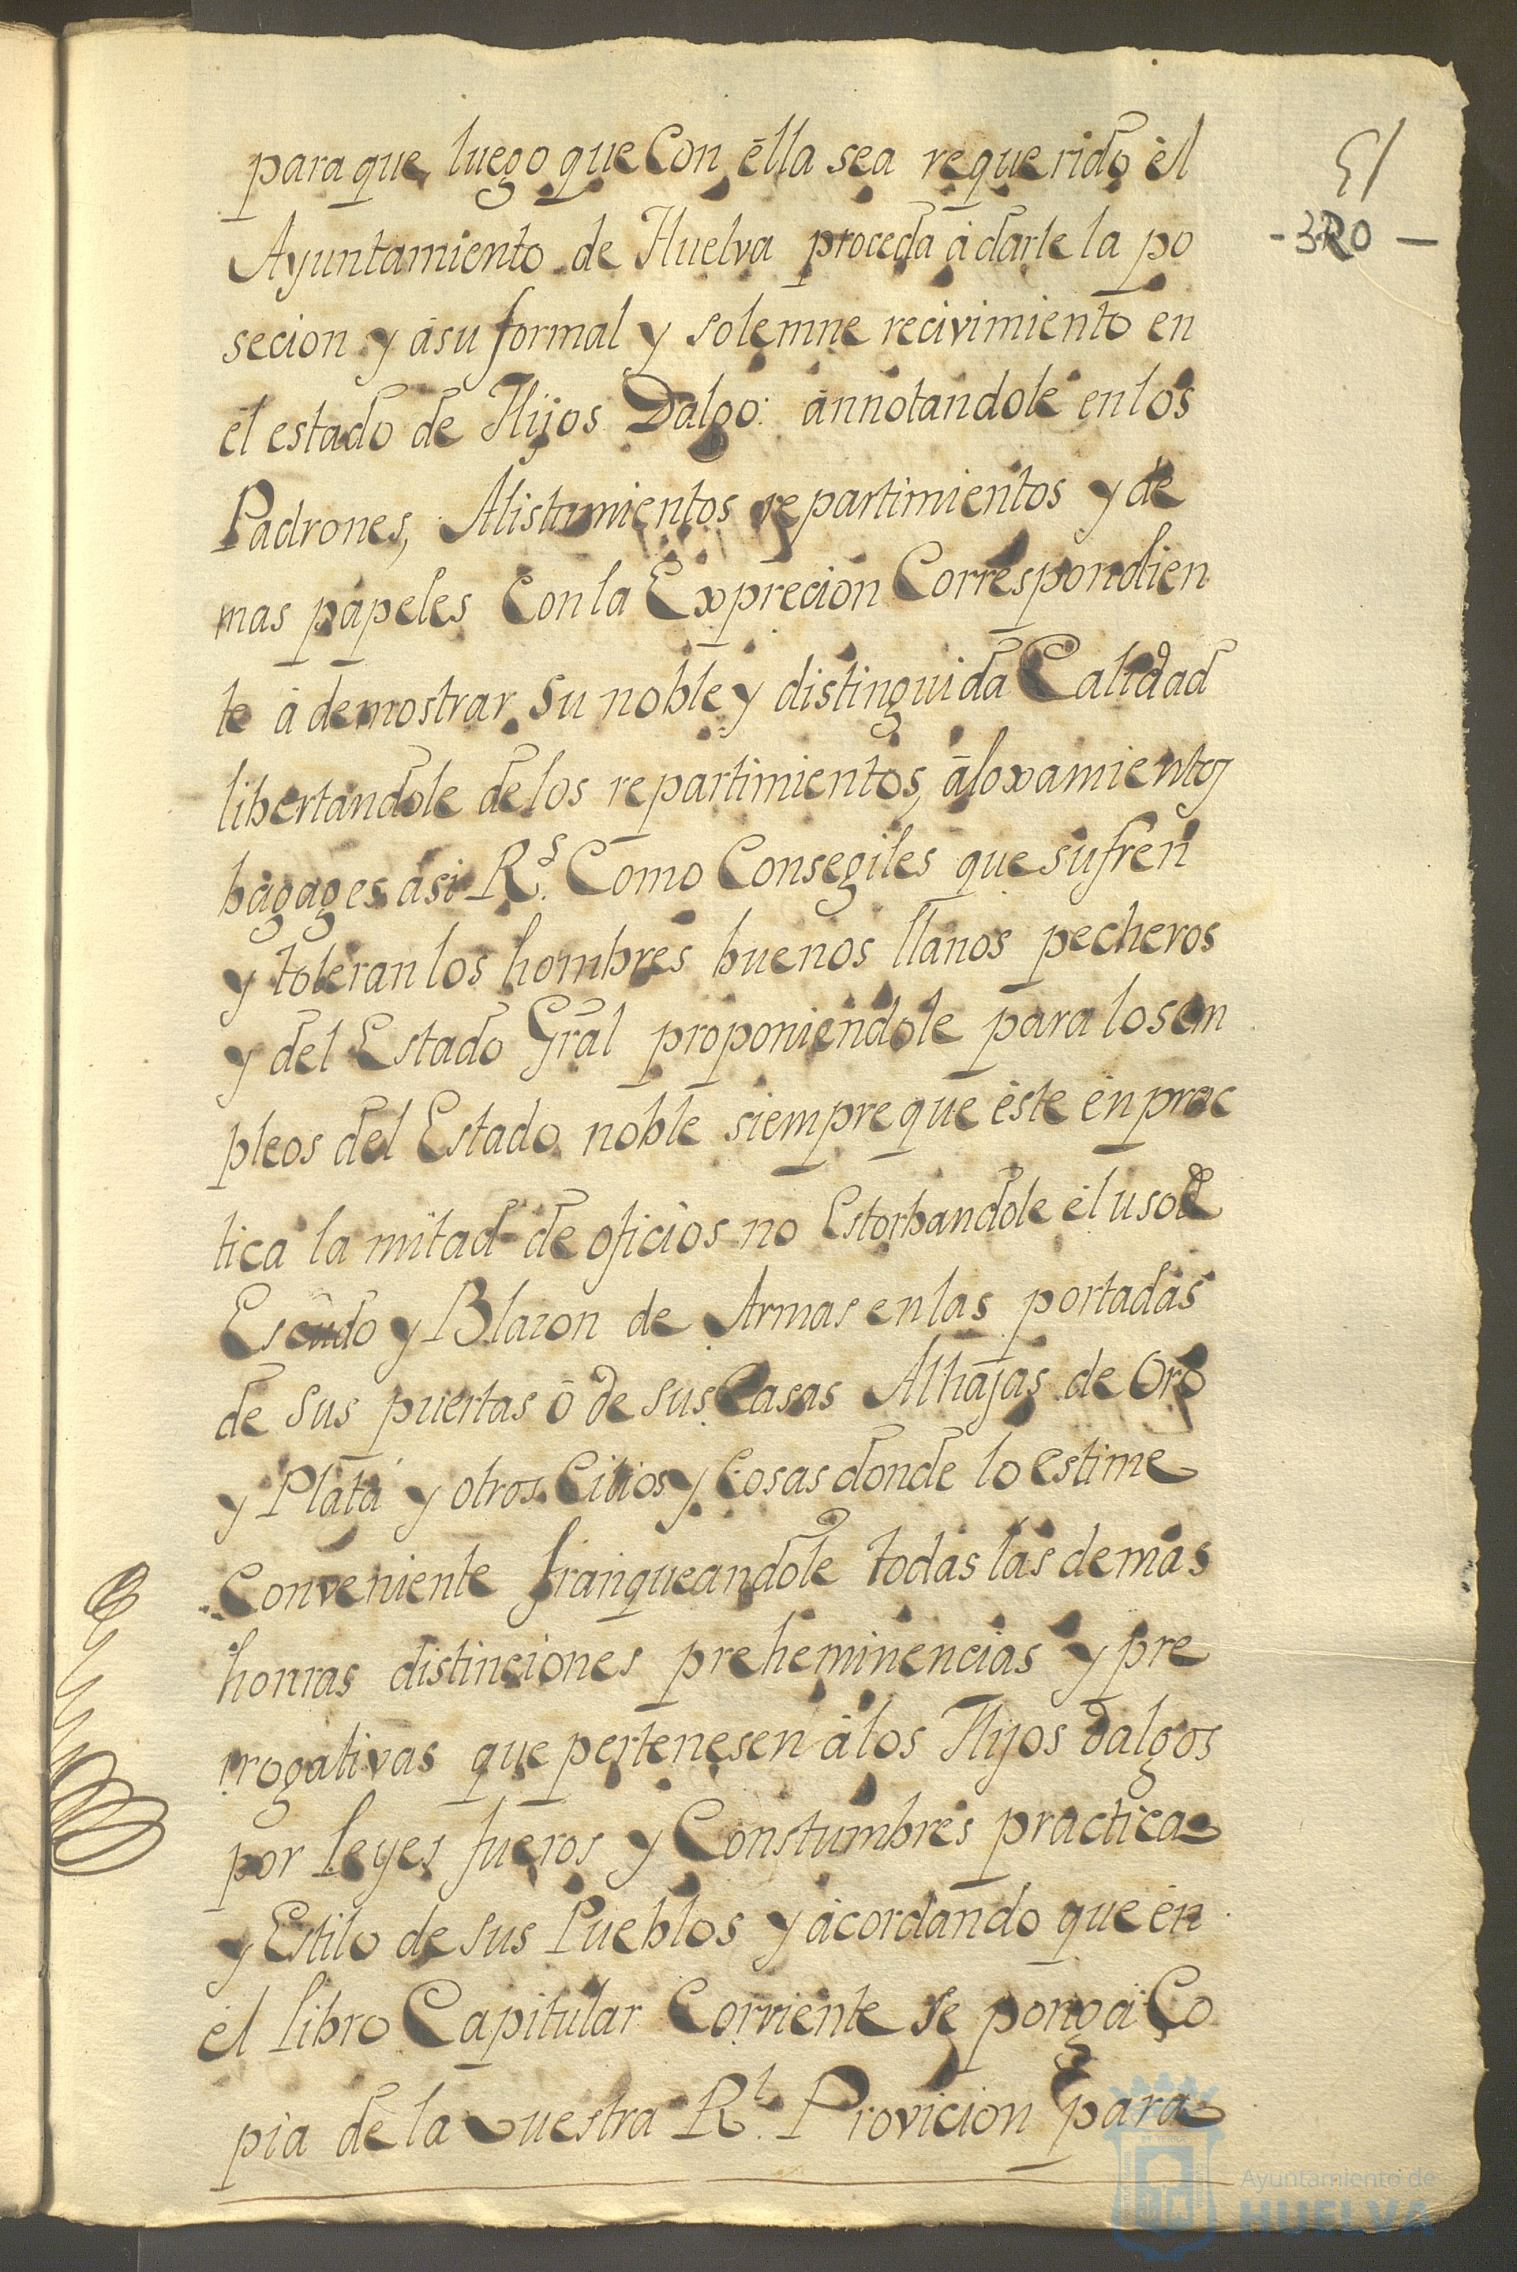 para que luego que Con ella sea requerido èl
Ayuntamiento de Huelva proceda à darle la po
secion y à su formal y solemne recivimiento en
èl estado de Hijos Dalgo: ànnotandole en los
Padrones, Alistamientos repartimientos y de
mas papeles Con la Exprecion Correspondien
te à demostrar su noble y distinguida Calidad
libertandole de los repartimientos, àloxamientos
bagages àsi R.s Como Consegiles que sufren
y toleran los hombres buenos llanos pecheros
y del Estado Gral proponiendole para los em
pleos del Estado noble siempre que èste èn prac
tica la mitad de oficios no Estorbandole èl uso de
Escudo y Blazon de Armas en las portadas
de sus puertas ò de sus Casas Alhajas de Oro
y Plata y otros Citios y Cosas donde lo estime
Conveniente franqueandole todas las demas
honras distinciones preheminencias y pre
rrogativas que pertenesen à los Hijos dalgos
por leyes fueros y Constumbres practica
y Estilo de sus Pueblos y àcordando que èn
èl libro Capitular Corriente se ponga Co
pia de la vuestra R.l Provicion para
51
- 320 -
Ayuntamiento de
HUELVA